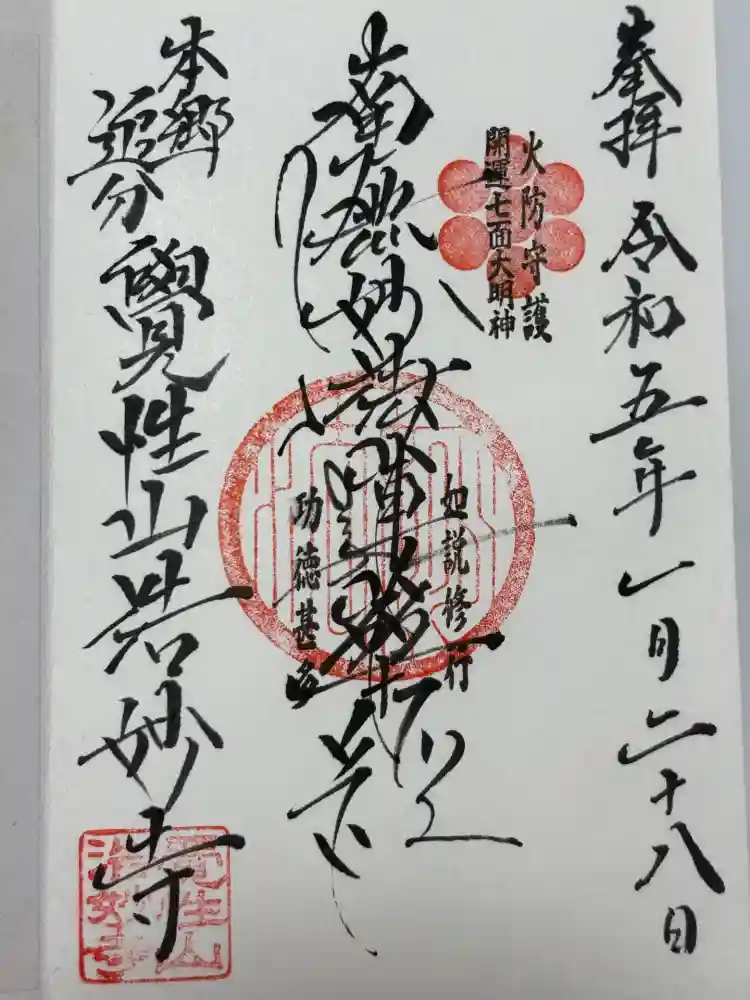 奉拝 令和五年一月二十八日
火防守護
開運七面大明神
南無妙法蓮華経
如説修行
功徳甚多
本郷
追分
覺性山 法妙寺